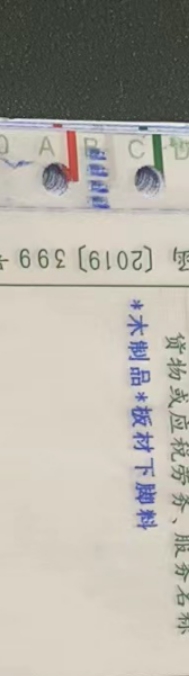 货物或应税劳务、服务名称
*木制品*板材下脚料
〔2019〕399
A B C